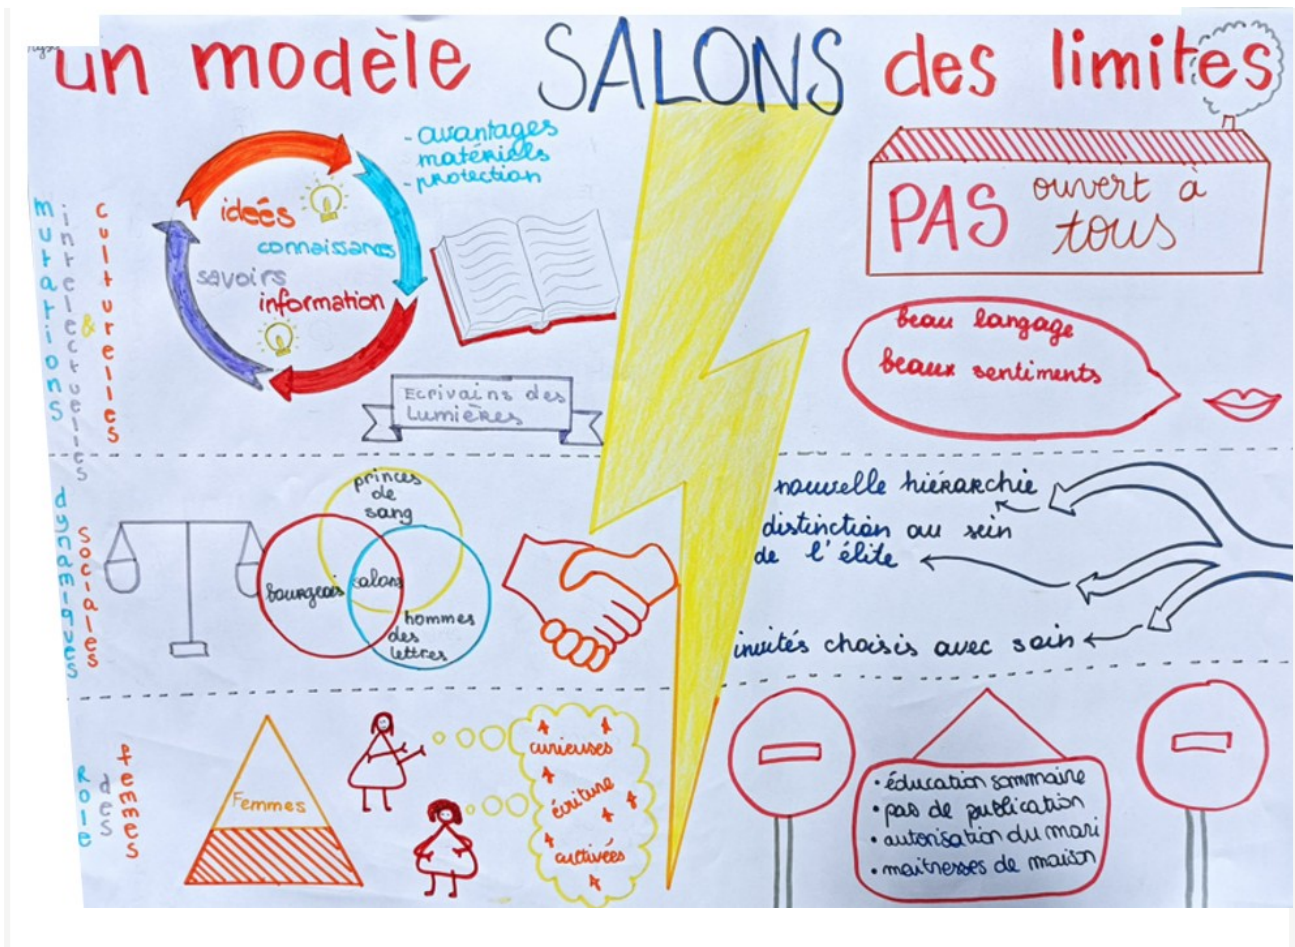 un modèle SALONS des limites
mutations
intellectuelles
&
culturelles
idées
connaissances
savoirs
information
- avantages
matériels
- protection
Ecrivains des
Lumières
PAS ouvert à
tous
beau langage
beaux sentiments
dynamiques
sociales
princes
de
sang
bourgeois
salons
hommes
des
lettres
nouvelle hiérarchie
distinction au sein
de l'élite
invités choisis avec soin
Role
des
femmes
Femmes
curieuses
écriture
cultivées
• éducation sommaire
• pas de publication
• autorisation du mari
• maitresses de maison